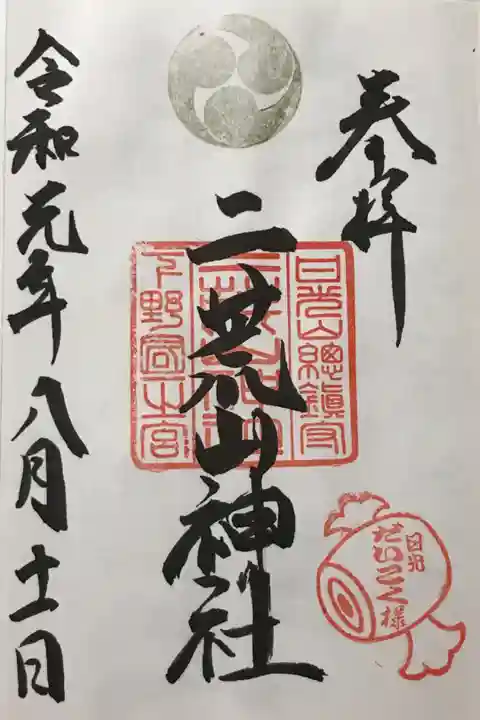 奉拝
二荒山神社
日光山總鎮守
二荒山神社
下野國一之宮
日光
だいこく様
令和元年八月十一日